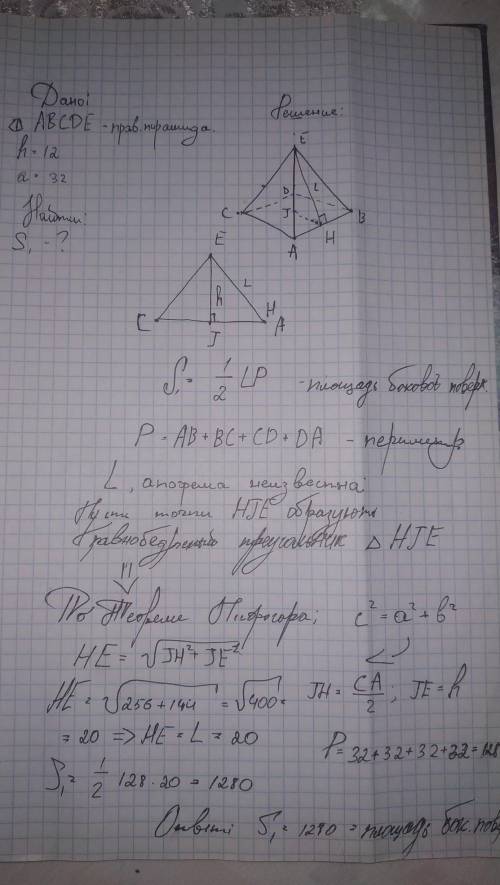 Дано:
ABCDE - прав. пирамида.
h = 12
a = 32
Найти:
S₁ - ?
Решение:
E
D
L
C
J
B
A
H
E
h
L
C
J
H
A
S₁ = 1/2 LP - площадь боковой поверх.
P = AB + BC + CD + DA - периметр
L, апофема неизвестна;
Пусть точки HJE образуют
равнобедренный треугольник △ HJE
⇓
По Теореме Пифагора; c² = a² + b²
HE = √JH² + JE²
HE = √256 + 144 = √400 =
JH = CA/2 ; JE = h
= 20 => HE = L = 20
P = 32+32+32+32 = 128
S₁ = 1/2 128 · 20 = 1280
Ответ: S₁ = 1280 = площадь бок. пов